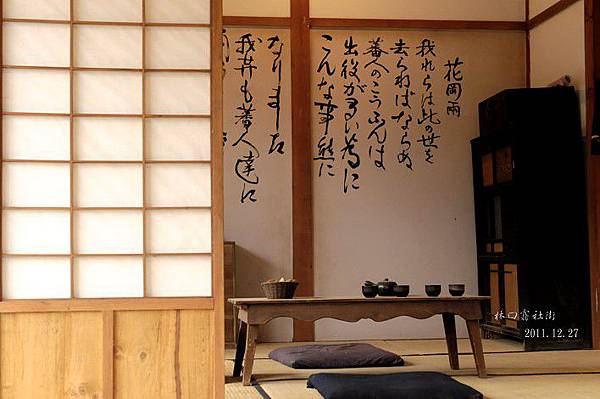 花岡兩
我れらは此の世を
去らねばならぬ
蕃人のこうふんは
出役が多い為に
こんな事態に
なりました
我等も蕃人達に
林口霧社街
2011.12.27